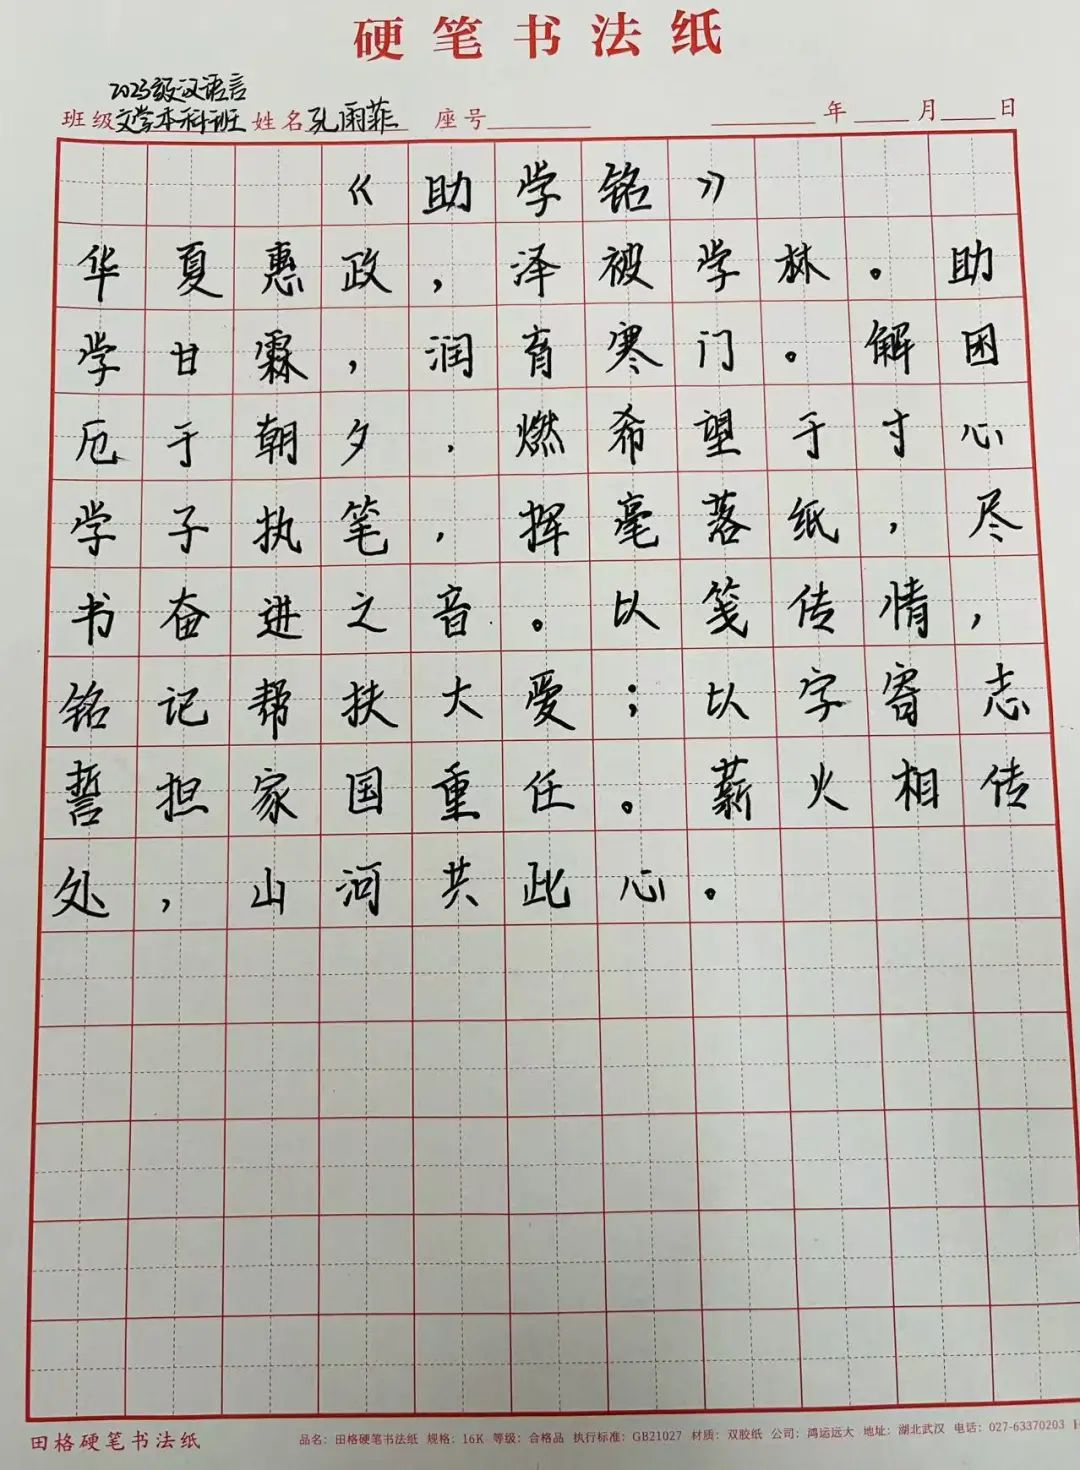 硬笔书法纸
2023级汉语言
班级文学本科班 姓名孔雨菲 座号 年 月 日
《助学铭》
华夏惠政，泽被学林。助
学甘霖，润育寒门。解困
厄于朝夕，燃希望于寸心
学子执笔，挥毫落纸，尽
书奋进之音。以笺传情，
铭记帮扶大爱；以字寄志
誓担家国重任。薪火相传
处，山河共此心。
田格硬笔书法纸 品名：田格硬笔书法纸 规格：16K 等级：合格品 执行标准：GB21027 材质：双胶纸 公司：鸿运远大 地址：湖北武汉 电话：027-63370203